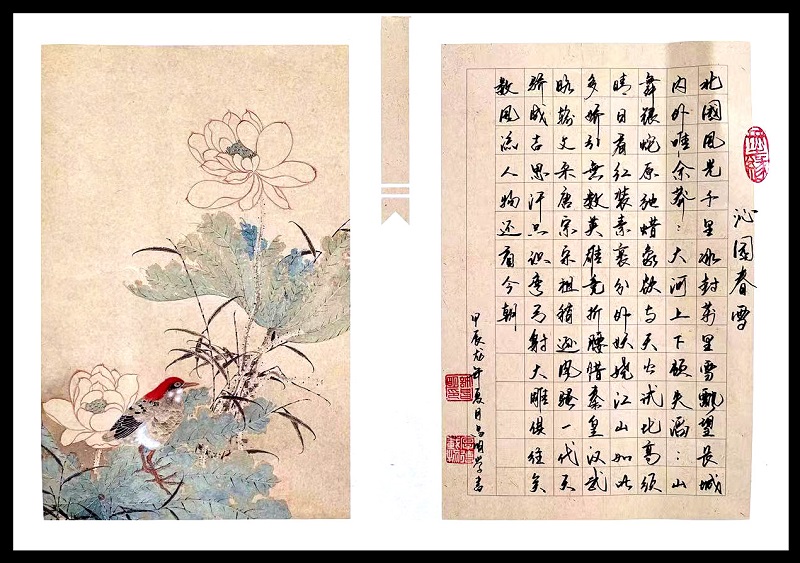 沁园春雪
北國风光千里冰封万里雪飘望长城
内外唯余莽:大河上下顿失滔:山
舞银蛇原驰蜡象欲与天公试比高须
晴日看红装素裹分外妖娆江山如此
多娇引無数英雄竞折腰惜秦皇汉武
略输文采唐宗宋祖稍逊风骚一代天
骄成吉思汗只识弯弓射大雕俱往矣
数风流人物还看今朝
甲辰龙年夏月